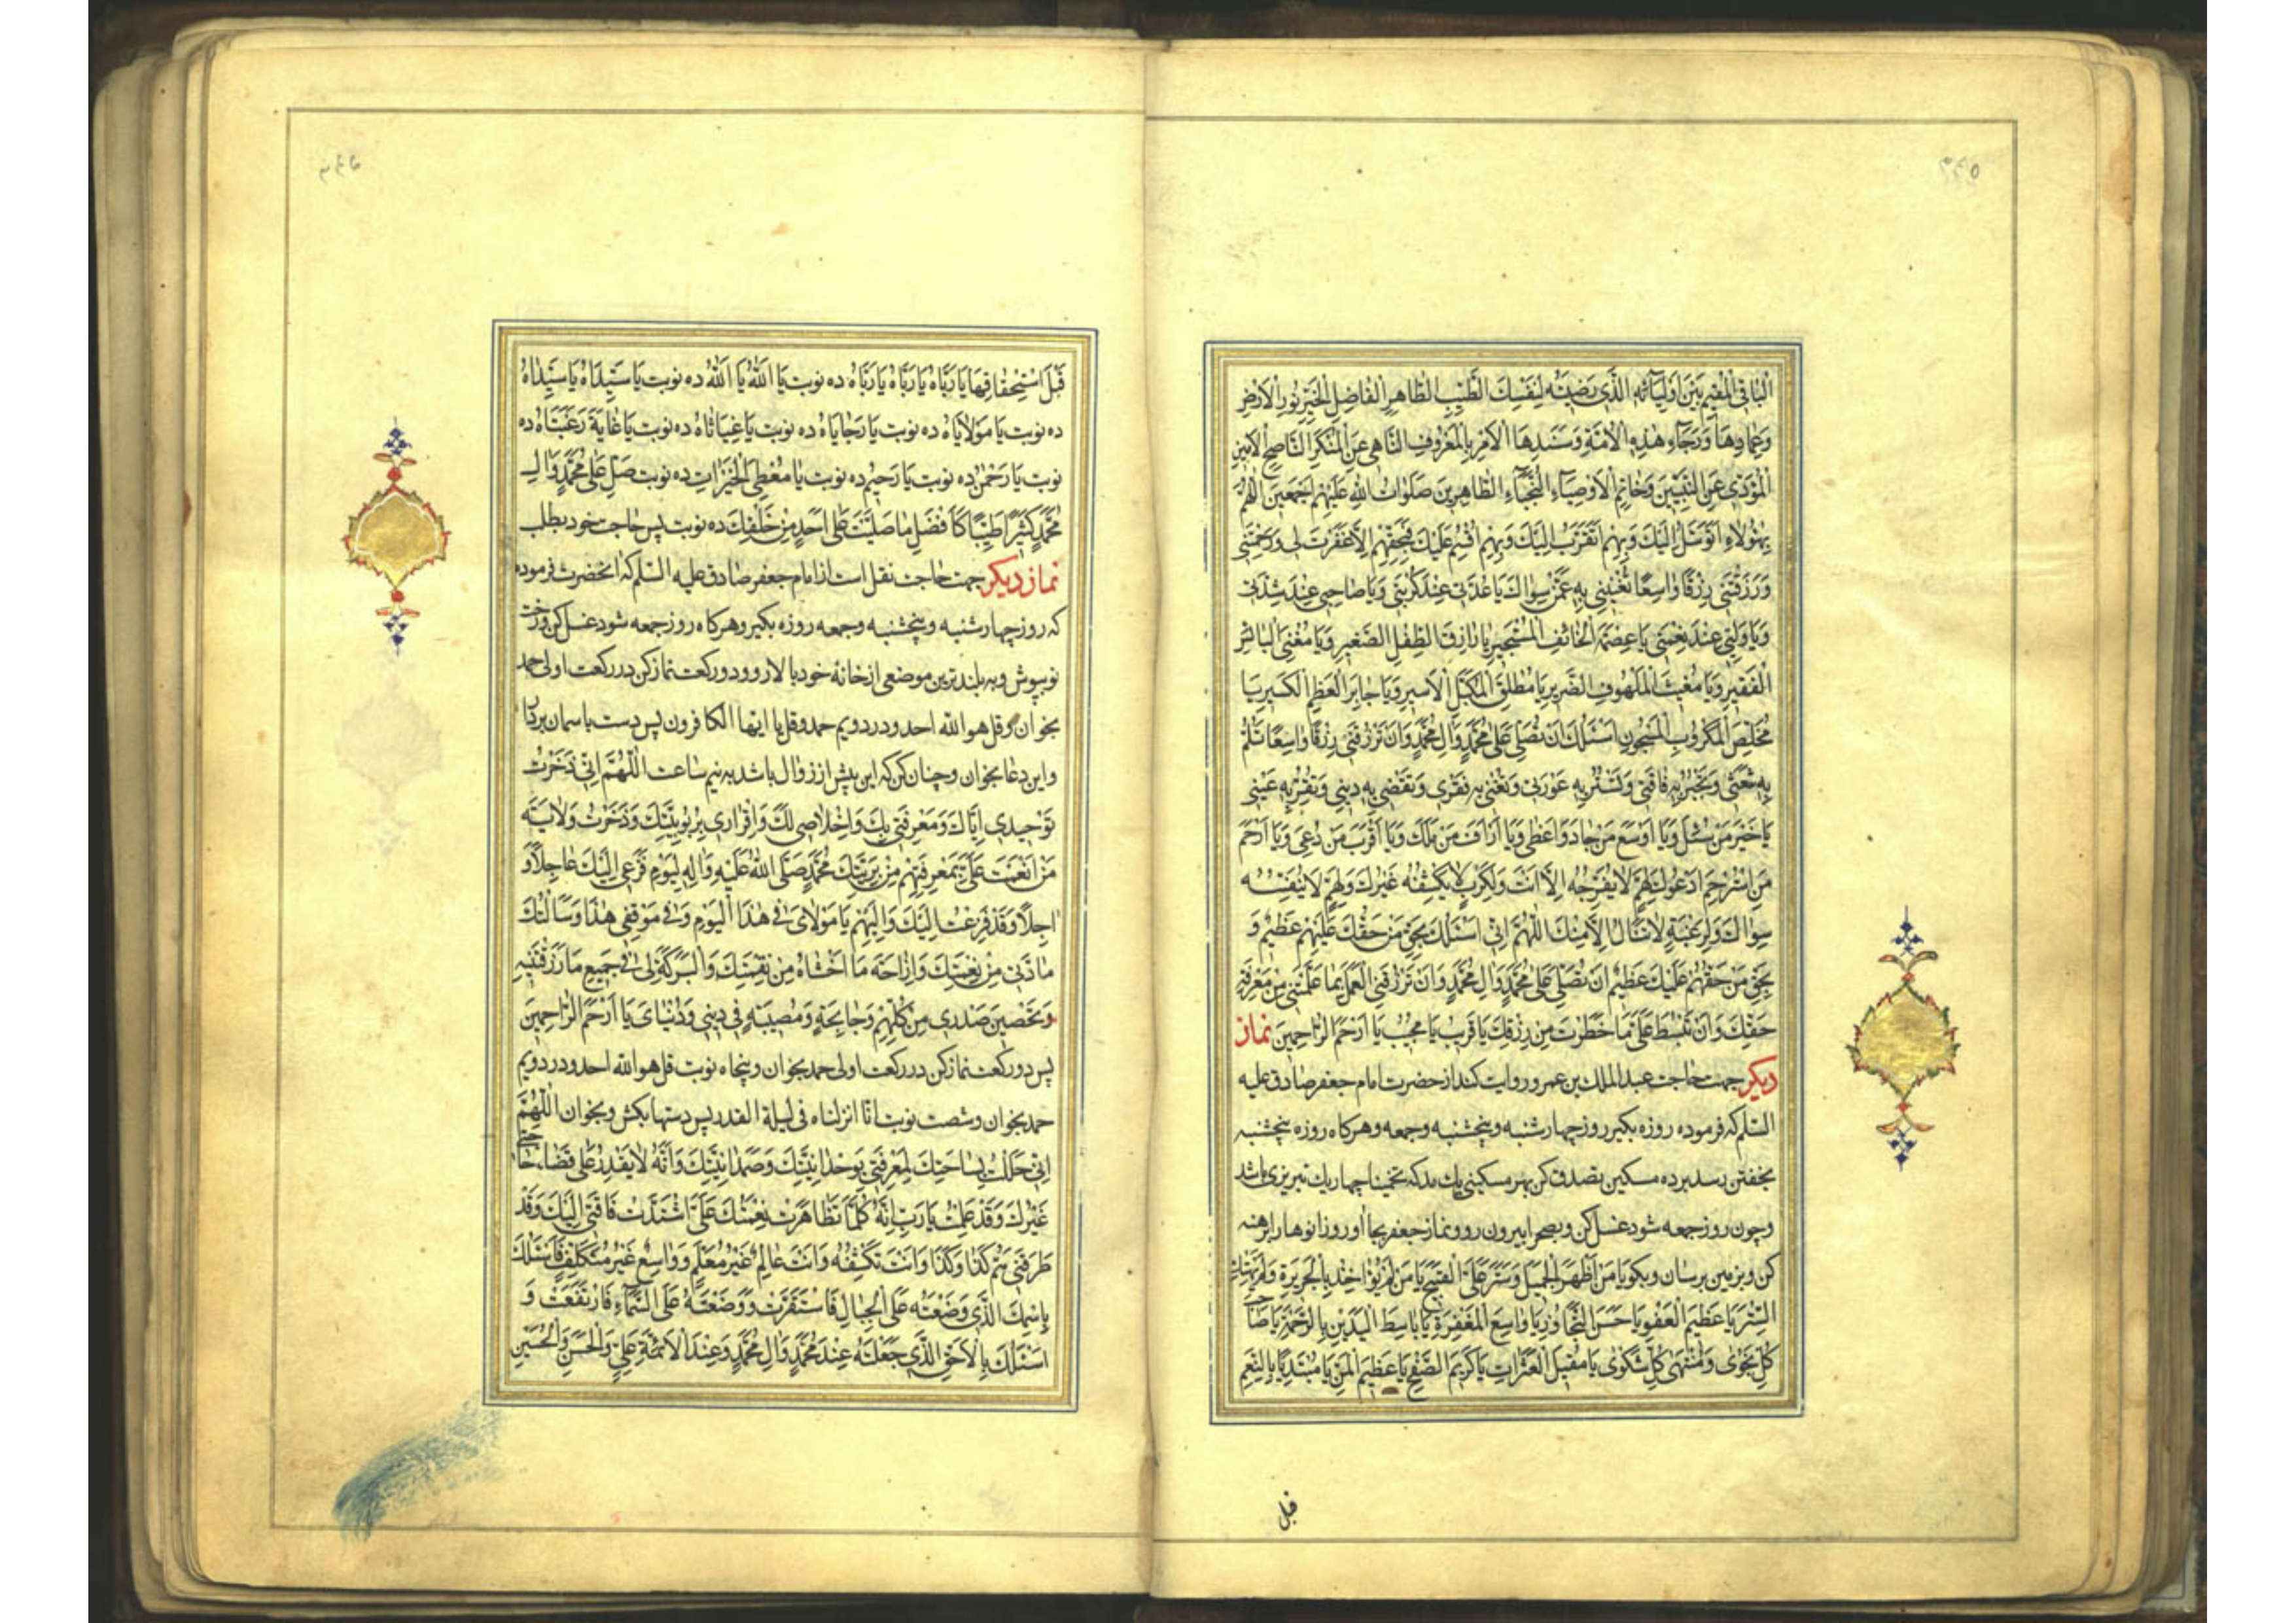 ۳۴۵
الْبٰاقِی الْمُقِیمِ بَیْنَ اَوْلِیٰآئِهِ الَّذِی رَضِیتَهُ لِنَفْسِكَ الطَّیِّبِ الطّٰاهِرِ الْفٰاضِلِ الْخَیِّرِ نُورِ الْاَرْضِ
وَعِمٰادِهٰا وَرَجٰآءِ هٰذِهِ الْاُمَّةِ وَسَنَدِهَا الْاٰمِرِ بِالْمَعْرُوفِ النّٰاهِی عَنِ الْمُنْكَرِ النّٰاصِحِ الْاَمِینِ
الْمُؤَدِّی عَنِ النَّبِیِّینَ وَخٰاتِمِ الْاَوْصِیٰآءِ النُّجَبٰآءِ الطّٰاهِرِینَ صَلَوٰاتُ اللّٰهِ عَلَیْهِمْ اَجْمَعِینَ اللّٰهُمَّ
بِهٰؤُلٰاءِ اَتَوَسَّلُ اِلَیْكَ وَبِهِمْ اَتَقَرَّبُ اِلَیْكَ وَبِهِمْ اُقْسِمُ عَلَیْكَ فَبِحَقِّهِمْ اِلّٰا غَفَرْتَ لِی وَرَحِمْتَنِی
وَرَزَقْتَنِی رِزْقًا وٰاسِعًا تُغْنِینِی بِهِ عَمَّنْ سِوٰاكَ یٰا عُدَّتِی عِنْدَ كُرْبَتِی وَیٰا صٰاحِبِی عِنْدَ شِدَّتِی
وَیٰا وَلِیِّی عِنْدَ نِعْمَتِی یٰا عِصْمَةَ الْخٰائِفِ الْمُسْتَجِیرِ یٰا رٰازِقَ الطِّفْلِ الصَّغِیرِ وَیٰا مُغْنِیَ الْبٰائِسِ
الْفَقِیرِ وَیٰا مُغِیثَ الْمَلْهُوفِ الضَّرِیرِ یٰا مُطْلِقَ الْمُكَبَّلِ الْاَسِیرِ وَیٰا جٰابِرَ الْعَظْمِ الْكَسِیرِ یٰا
مُخَلِّصَ الْمَكْرُوبِ الْمَسْجُونِ اَسْئَلُكَ اَنْ تُصَلِّیَ عَلٰی مُحَمَّدٍ وَاٰلِ مُحَمَّدٍ وَاَنْ تَرْزُقَنِی رِزْقًا وٰاسِعًا تَلُمُّ
بِهِ شَعْثِی وَتَجْبُرُ بِهِ فٰاقَتِی وَتَسْتُرُ بِهِ عَوْرَتِی وَتُغْنِی بِهِ فَقْرِی وَتَقْضِی بِهِ دَیْنِی وَتُقِرُّ بِهِ عَیْنِی
یٰا خَیْرَ مَنْ سُئِلَ وَیٰا اَوْسَعَ مَنْ جٰادَ وَاَعْطٰی وَیٰا اَرْاَفَ مَنْ مَلَكَ وَیٰا اَقْرَبَ مَنْ دُعِیَ وَیٰا اَرْحَمَ
مَنِ اسْتُرْحِمَ اَدْعُوكَ لِهَمٍّ لٰا یُفَرِّجُهُ اِلّٰا اَنْتَ وَلِكَرْبٍ لٰا یَكْشِفُهُ غَیْرُكَ وَلِهَمٍّ لٰا یُنَفِّسُهُ
سِوٰاكَ وَلِرَغْبَةٍ لٰا تُنٰالُ اِلّٰا مِنْكَ اللّٰهُمَّ اِنِّی اَسْئَلُكَ بِحَقِّ مَنْ حَقُّكَ عَلَیْهِمْ عَظِیمٌ وَ
بِحَقِّ مَنْ حَقُّهُمْ عَلَیْكَ عَظِیمٌ اَنْ تُصَلِّیَ عَلٰی مُحَمَّدٍ وَاٰلِ مُحَمَّدٍ وَاَنْ تَرْزُقَنِی الْعَمَلَ بِمٰا عَلَّمْتَنِی مِنْ مَعْرِفَةِ
حَقِّكَ وَاَنْ تَبْسُطَ عَلَیَّ مٰا حَظَرْتَ مِنْ رِزْقِكَ یٰا قَرِیبُ یٰا مُجِیبُ یٰا اَرْحَمَ الرّٰاحِمِینَ نماز
دیكر جهت حاجت عبد الملك بن عمرو روایت كند از حضرت امام جعفر صادق علیه
السّلم كه فرموده روزه بكیر روز چهارشنبه و پنجشنبه وجمعه وهركاه روزه پنجشنبه
بخفتن رسد بر ده مسكین تصدق كن بهر مسكینی یك مد كه تخمینا چهار یك تبریزی باشد
وچون روز جمعه شود غسل كن وبصحرا بیرون رو ونماز جعفر بجا اور وزانوها را برهنه
كن وبزمین برسان وبكو یٰا مَنْ اَظْهَرَ الْجَمِیلَ وَسَتَرَ عَلَیَّ الْقَبِیحَ یٰا مَنْ لَمْ یُؤٰاخِذْ بِالْجَرِیرَةِ وَلَمْ یَهْتِكِ
السِّتْرَ یٰا عَظِیمَ الْعَفْوِ یٰا حَسَنَ التَّجٰاوُزِ یٰا وٰاسِعَ الْمَغْفِرَةِ یٰا بٰاسِطَ الْیَدَیْنِ بِالرَّحْمَةِ یٰا صٰاحِبَ
كُلِّ نَجْوٰی وَمُنْتَهٰی كُلِّ شَكْوٰی یٰا مُقِیلَ الْعَثَرٰاتِ یٰا كَرِیمَ الصَّفْحِ یٰا عَظِیمَ الْمَنِّ یٰا مُبْتَدِئًا بِالنِّعَمِ
قبل
قَبْلَ اسْتِحْقٰاقِهٰا یٰا رَبّٰاهُ یٰا رَبّٰاهُ یٰا رَبّٰاهُ ده نوبت یٰا اَللّٰهُ یٰا اَللّٰهُ ده نوبت یٰا سَیِّدٰاهُ یٰا سَیِّدٰاهُ
ده نوبت یٰا مَوْلٰایٰاهُ ده نوبت یٰا رَجٰایٰاهُ ده نوبت یٰا غِیٰاثٰاهُ ده نوبت یٰا غٰایَةَ رَغْبَتٰاهُ ده
نوبت یٰا رَحْمٰنُ ده نوبت یٰا رَحِیمُ ده نوبت یٰا مُعْطِیَ الْخَیْرٰاتِ ده نوبت صَلِّ عَلٰی مُحَمَّدٍ وَاٰلِ
مُحَمَّدٍ كَثِیرًا طَیِّبًا كَاَفْضَلِ مٰا صَلَّیْتَ عَلٰی اَحَدٍ مِنْ خَلْقِكَ ده نوبت پس حاجت خود بطلب
نماز دیكر جهت حاجت نقل است از امام جعفر صادق علیه السّلم كه انحضرت فرموده
كه روز چهارشنبه وپنجشنبه وجمعه روزه بكیر وهركاه روز جمعه شود غسل كن ورخت
نو بپوش وبه بلندترین موضعی از خانه خود بالا رو ودو ركعت نماز كن در ركعت اولی حمد
بخوان وقل هو الله احد ودر دویم حمد وقل یا ایها الكافرون پس دست باسمان بردار
واین دعا بخوان وچنان كن كه این پیش از زوال باشد به نیم ساعت اَللّٰهُمَّ اِنِّی ذَخَرْتُ
تَوْحِیدِی اِیّٰاكَ وَمَعْرِفَتِی بِكَ وَاِخْلٰاصِی لَكَ وَاِقْرٰارِی بِرُبُوبِیَّتِكَ وَذَخَرْتُ وَلٰایَةَ
مَنْ اَنْعَمْتَ عَلَیَّ بِمَعْرِفَتِهِمْ مِنْ بَرِیَّتِكَ مُحَمَّدٍ صَلَّی اللّٰهُ عَلَیْهِ وَاٰلِهِ لِیَوْمِ فَزَعِی اِلَیْكَ عٰاجِلًا وَ
اٰجِلًا وَقَدْ فَزِعْتُ اِلَیْكَ وَاِلَیْهِمْ یٰا مَوْلٰایَ فِی هٰذَا الْیَوْمِ وَفِی مَوْقِفِی هٰذٰا وَسَاَلْتُكَ
مٰادَّتِی مِنْ نِعْمَتِكَ وَاِزٰاحَةَ مٰا اَخْشٰاهُ مِنْ نِقْمَتِكَ وَالْبَرَكَةَ لِی فِی جَمِیعِ مٰا رَزَقْتَنِیهِ
وَتَحْصِینَ صَدْرِی مِنْ كُلِّ هَمٍّ وَجٰائِحَةٍ وَمُصِیبَةٍ فِی دِینِی وَدُنْیٰایَ یٰا اَرْحَمَ الرّٰاحِمِینَ
پس دو ركعت نماز كن در ركعت اولی حمد بخوان وپنجاه نوبت قل هو الله احد ودر دویم
حمد بخوان وشصت نوبت انّا انزلناه فی لیلة القدر پس دستها بكش وبخوان اَللّٰهُمَّ
اِنِّی حَلَلْتُ بِسٰاحَتِكَ لِمَعْرِفَتِی بِوَحْدٰانِیَّتِكَ وَصَمَدٰانِیَّتِكَ وَاَنَّهُ لٰا یَقْدِرُ عَلٰی قَضٰاءِ حٰاجَتِی
غَیْرُكَ وَقَدْ عَلِمْتُ یٰا رَبِّ اَنَّهُ كُلَّمٰا تَظٰاهَرَتْ نِعْمَتُكَ عَلَیَّ اشْتَدَّتْ فٰاقَتِی اِلَیْكَ وَقَدْ
طَرَقَنِی هَمُّ كَذٰا وَكَذٰا وَاَنْتَ تَكْشِفُهُ وَاَنْتَ عٰالِمٌ غَیْرُ مُعَلَّمٍ وَوٰاسِعٌ غَیْرُ مُتَكَلِّفٍ فَاَسْئَلُكَ
بِاسْمِكَ الَّذِی وَضَعْتَهُ عَلَی الْجِبٰالِ فَاسْتَقَرَّتْ وَوَضَعْتَهُ عَلَی السَّمٰآءِ فَارْتَفَعَتْ وَ
اَسْئَلُكَ بِالْحَقِّ الَّذِی جَعَلْتَهُ عِنْدَ مُحَمَّدٍ وَاٰلِ مُحَمَّدٍ وَعِنْدَ الْاَئِمَّةِ عَلِیٍّ وَالْحَسَنِ وَالْحُسَیْنِ